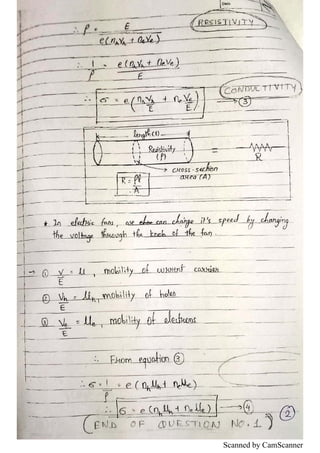 ∴ ρ = E / e(nₕvₕ + nₑvₑ) (RESISTIVITY)
∴ 1/ρ = e(nₕvₕ + nₑvₑ) / E
(CONDUCTIVITY)
∴ σ = e(nₕ vₕ/E + nₑ vₑ/E) → ③
length(l)
Resistivity (ρ) = R
R = ρl/A
cross-section area (A)
* In electric fans, we can change it's speed by changing
the voltage through the knob of the fan.
→ ① v/E = μ, mobility of current carrier
② vₕ/E = μₕ, mobility of holes
③ vₑ/E = μₑ, mobility of electrons
∴ From equation ③
∴ σ = 1/ρ = e(nₕμₕ + nₑμₑ)
∴ σ = e(nₕμₕ + nₑμₑ) → ④
(END OF QUESTION NO. 1) ②
Scanned by CamScanner